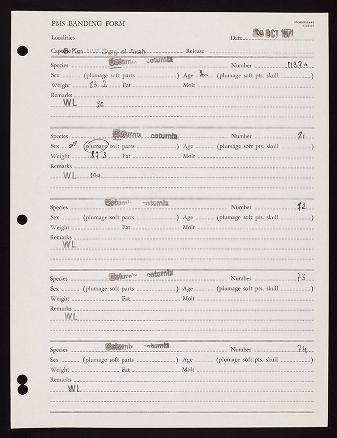 PMS BANDING FORM
Localities Date 29 OCT 1971
Capture 8 Km Burg el Arab Release
Species Coturnix coturnix Number 1137
Sex (plumage soft parts ) Age (plumage soft pts. skull )
Weight 83.2 Fat Molt
Remarks
WL
Species Coturnix coturnix Number 71
Sex (plumage soft parts ) Age (plumage soft pts. skull )
Weight 87.3 Fat Molt
Remarks
WL 100
Species Coturnix coturnix Number 72
Sex (plumage soft parts ) Age (plumage soft pts. skull )
Weight Fat Molt
Remarks
WL
Species Coturnix coturnix Number 73
Sex (plumage soft parts ) Age (plumage soft pts. skull )
Weight Fat Molt
Remarks
WL
Species Coturnix coturnix Number 74
Sex (plumage soft parts ) Age (plumage soft pts. skull )
Weight Fat Molt
Remarks
WL